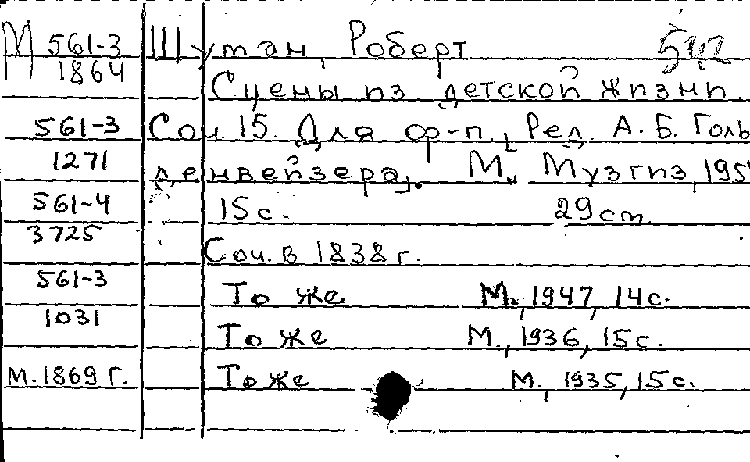 М 561-3 Шуман, Роберт 542
1864 Сцены из детской жизни.
561-3 Соч. 15. Для ф-п., Ред. А. Б. Голь
1271 денвейзера. М., Музгиз, 195
561-4 15 с. 29 cm.
3725 Соч. в 1838 г.
561-3 То же М., 1947, 14 с.
1031 То же М., 1936, 15 с.
М. 1869 Г. То же М., 1935, 15 с.